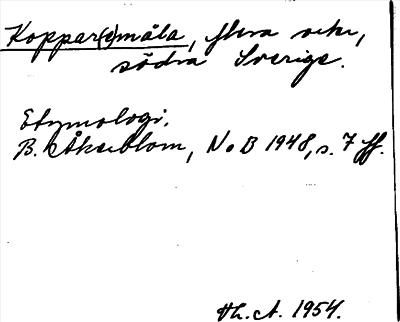 Koppar(e)måla, flera ställen,
södra Sverige.
Etymologi.
B. Åkerblom, NoB 1948, s. 7 ff.
Th. A. 1954.